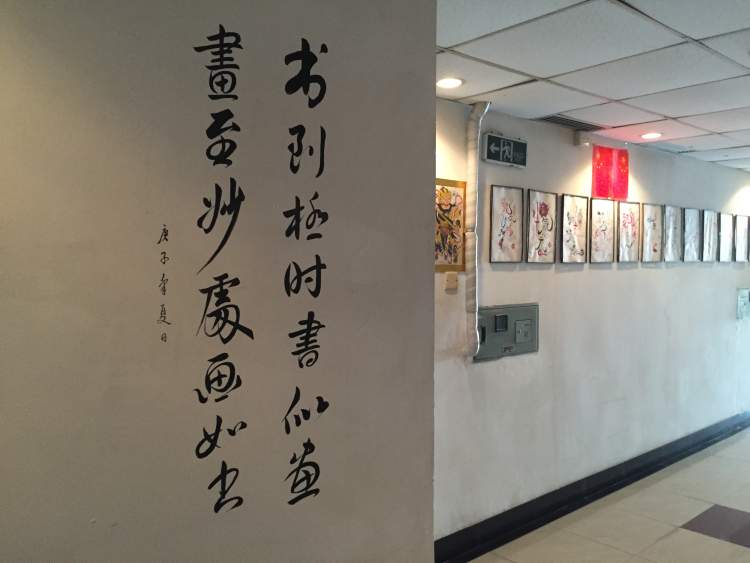 书到极时書似畫
畫至妙處画如书
庚子年夏日